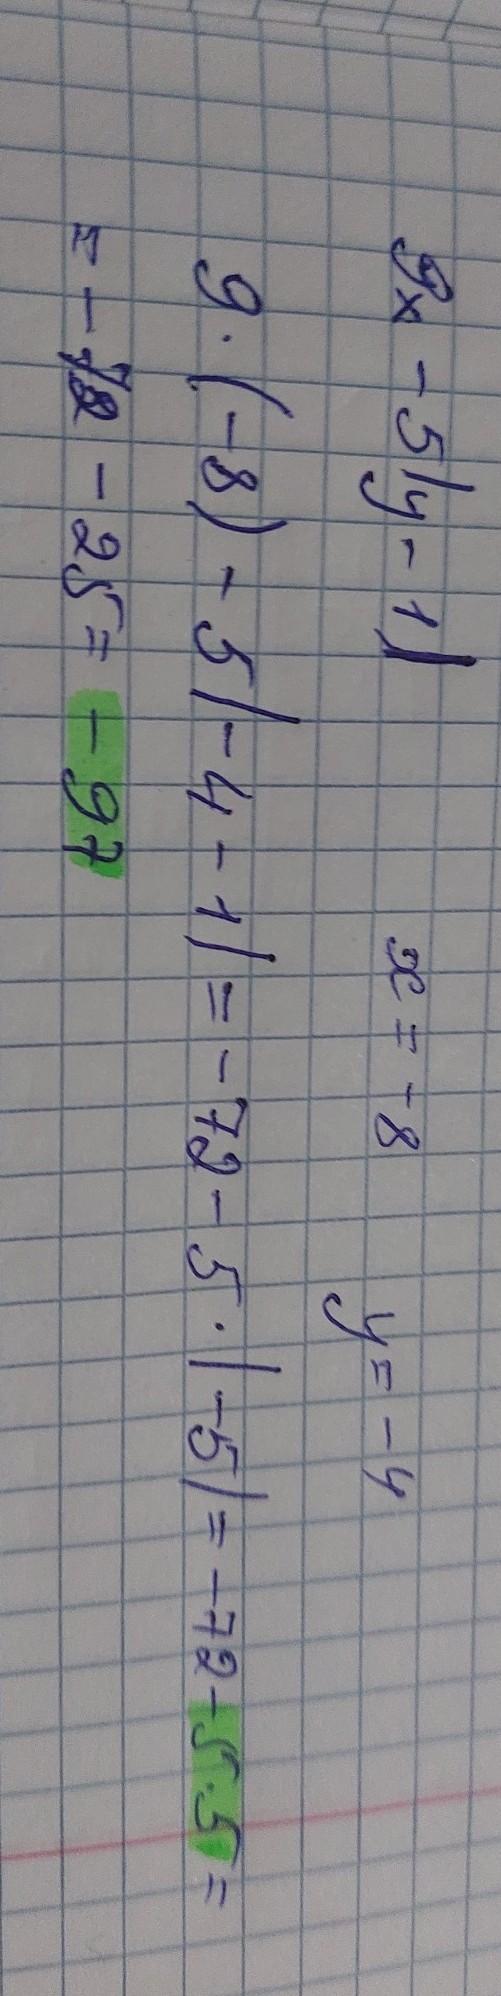 9x - 5|y - 1| x = -8 y = -4
9 · (-8) - 5|-4 - 1| = -72 - 5 · |-5| = -72 - 5 · 5 =
= -72 - 25 = -97